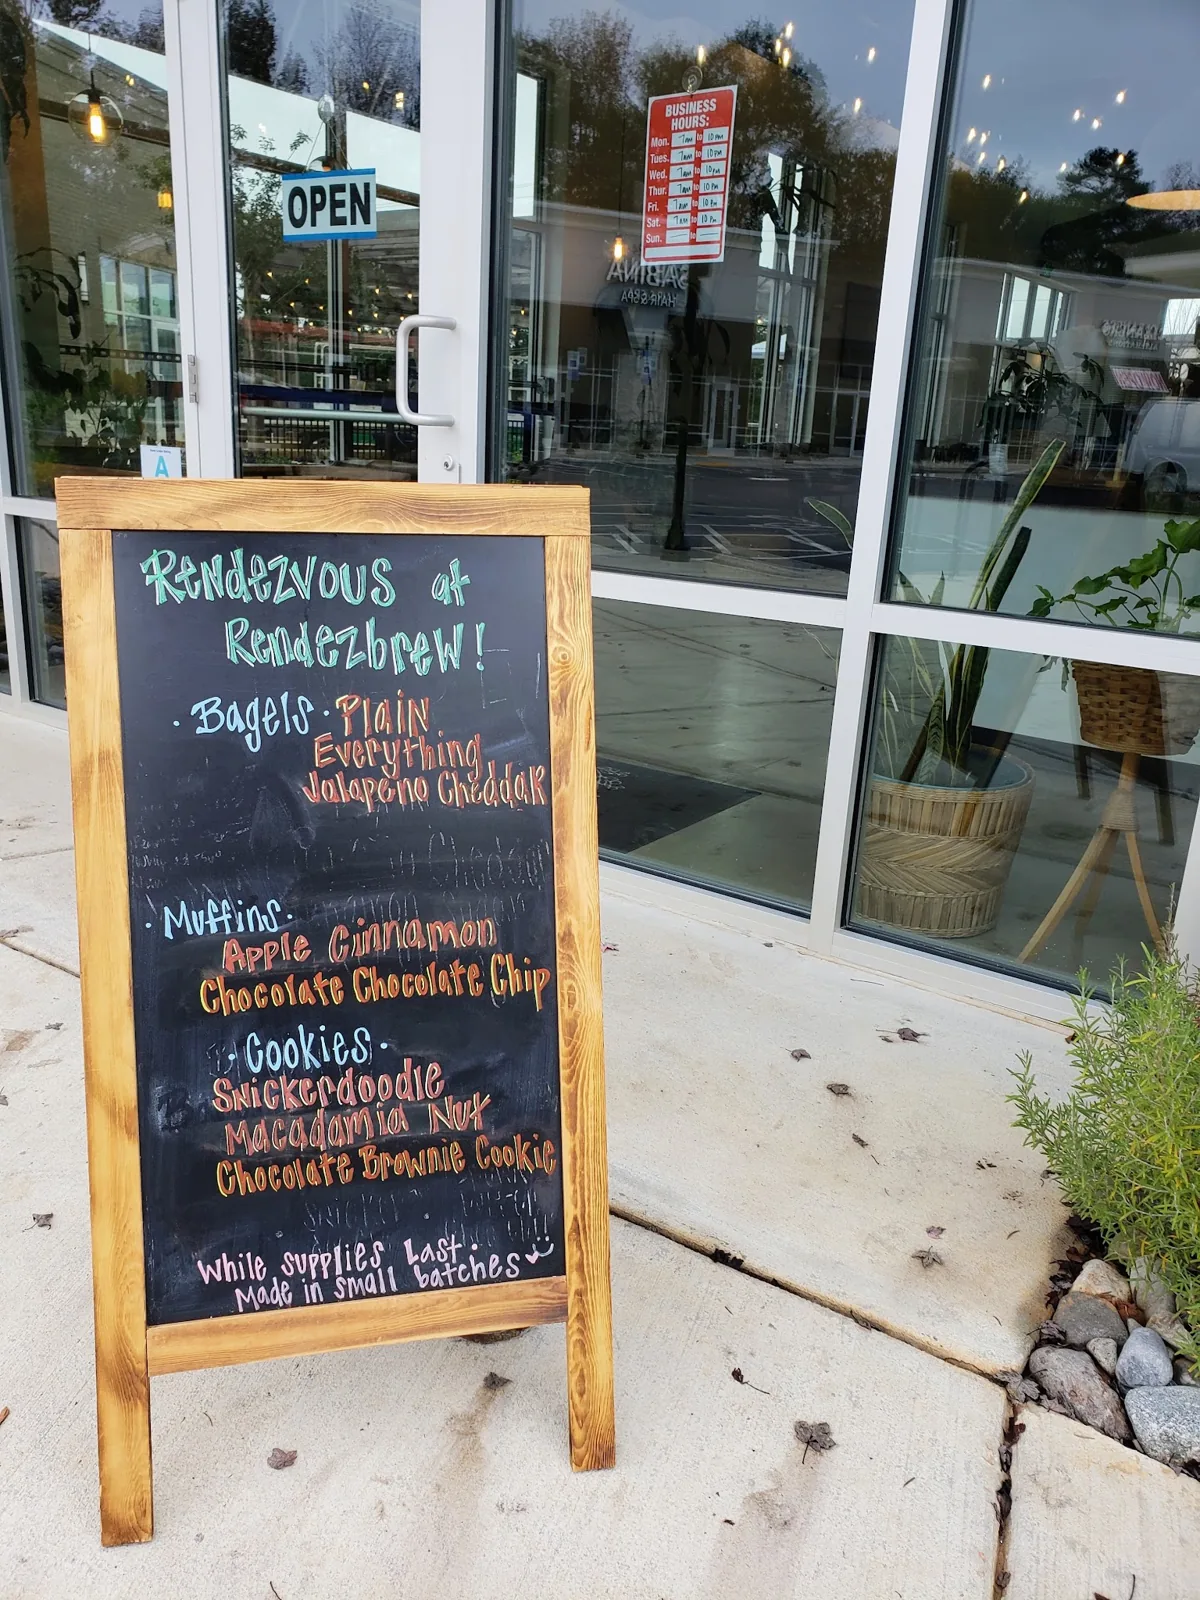 OPEN
BUSINESS
HOURS:
Mon. 7am to 10pm
Tues. 7am to 10pm
Wed. 7am to 10pm
Thur. 7am to 10pm
Fri. 7am to 10pm
Sat. 7am to 10pm
Sun. to
SABINA
HAIR & SPA
A
Rendezvous at
Rendezbrew!
· Bagels · Plain
Everything
Jalapeno Cheddar
· Muffins ·
Apple Cinnamon
Chocolate Chocolate Chip
· Cookies ·
Snickerdoodle
Macadamia Nut
Chocolate Brownie Cookie
While supplies Last.
Made in small batches